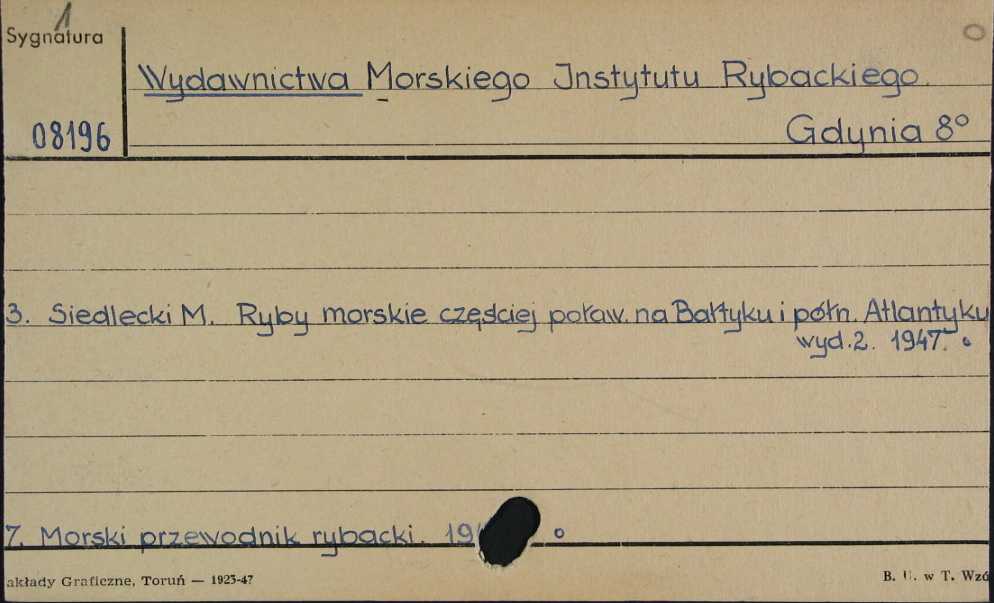 1
Sygnatura
Wydawnictwa Morskiego Jnstytutu Rybackiego.
08196
Gdynia 8°
3. Siedlecki M. Ryby morskie częściej poław. na Bałtyku i półn. Atlantyku
wyd.2. 1947.
7. Morski przewodnik rybacki. 19
akłady Graficzne, Toruń — 1923-47
B. U. w T. Wzó